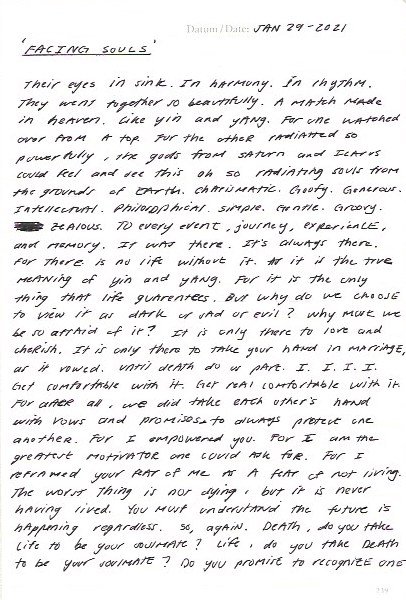 Datum / Date: JAN 29 - 2021
'FACING SOULS'
Their eyes in sink. In harmony. In rhythm.
They went together so beautifully. A match made
in heaven. Like yin and yang. For one watched
over from a top. For the other radiated so
powerfully, the gods from Saturn and Icarus
could feel and see this oh so radiating souls from
the grounds of Earth. Charismatic. Goofy. Generous.
Intellectual. Philosophical. Simple. Gentle. Groovy.
Zealous. To every event, journey, experience,
and memory. It was there. It's always there.
For there is no life without it. As it is the true
meaning of yin and yang. For it is the only
thing that life guarentees. But why do we choose
to view it as dark or sad or evil? Why must we
be so afraid of it? It is only there to love and
cherish. It is only there to take your hand in marriage,
as it vowed. Until death do us part. I. I. I. I.
Get comfortable with it. Get real comfortable with it.
For after all, we did take each other's hand
with vows and promises to always protect one
another. For I empowered you. For I am the
greatest motivator one could ask for. For I
reframed your fear of me as a fear of not living.
The worst thing is not dying, but it is never
having lived. You must understand the future is
happening regardless. So, again. Death, do you take
Life to be your soulmate? Life, do you take Death
to be your soulmate? Do you promise to recognize one